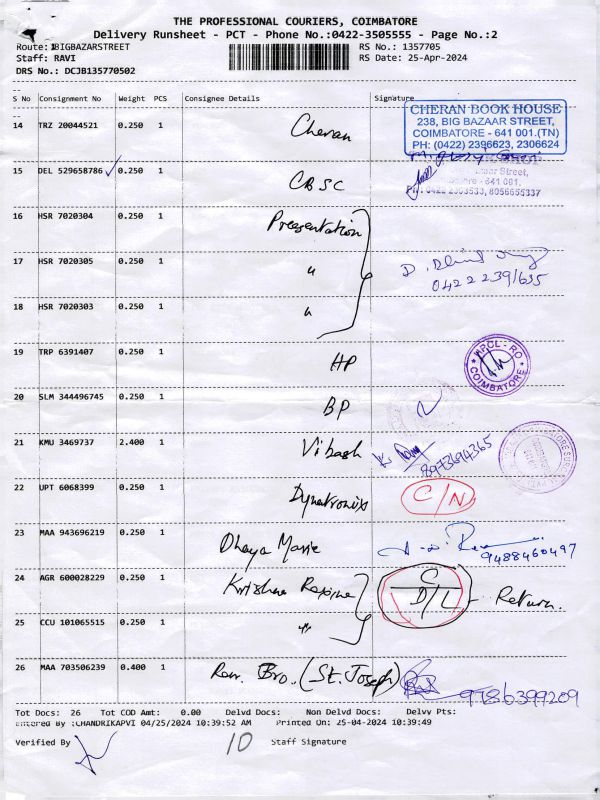 THE PROFESSIONAL COURIERS, COIMBATORE
Delivery Runsheet - PCT - Phone No.:0422-3505555 - Page No.:2
Route: BIGBAZARSTREET
RS No.: 1357705
Staff: RAVI
RS Date: 25-Apr-2024
DRS No.: DCJB135770502
S No Consignment No Weight PCS Consignee Details Signature
CHERAN BOOK HOUSE
238, BIG BAZAAR STREET,
COIMBATORE - 641 001.(TN)
PH: (0422) 2396623, 2306624
14 TRZ 20044521 0.250 1 Cheran
15 DEL 529658786 0.250 1 CBSC
Street,
- 641 001,
8056655337
16 HSR 7020304 0.250 1 Presentation
17 HSR 7020305 0.250 1 "
0422 2391635
18 HSR 7020303 0.250 1 "
19 TRP 6391407 0.250 1 HP
HPCL - RO
COIMBATORE
20 SLM 344496745 0.250 1 BP
21 KMU 3469737 2.400 1 Vibash
8973694365
22 UPT 6068399 0.250 1 Dynatronix C/N
23 MAA 943696219 0.250 1 Dhaya Marie
9488460497
24 AGR 600028229 0.250 1 Krishna
C
D/L - Return.
25 CCU 101065515 0.250 1 "
26 MAA 703506239 0.400 1 Rev. Bro. (St. Joseph)
9786399209
Tot Docs: 26 Tot COD Amt: 0.00 Delvd Docs: Non Delvd Docs: Delvy Pts:
Entered By :CHANDRIKAPVI 04/25/2024 10:39:52 AM Printed On: 25-04-2024 10:39:49
Verified By 10 Staff Signature